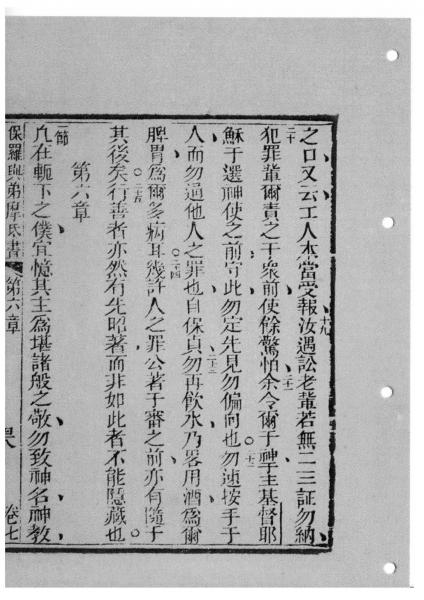 之口又云工人本當受報汝遇訟老輩若無二三証勿納
十九
二十
犯罪輩爾責之于衆前使餘驚怕余令爾于神于主基督耶
二一
穌于選神使之前守此勿定先見勿偏向也勿速按手于
二二
人而勿通他人之罪也自保貞勿再飲水乃畧用酒爲爾
二三
脾胃爲爾多病耳幾許人之罪公著于審之前亦有隨于
二四
其後矣行善者亦然有先昭著而非如此者不能隱藏也
二五
第六章
一節
凡在軛下之僕宜憶其主爲堪諸般之敬勿致神名神教
保羅與弟摩氏書 第六章 卷七